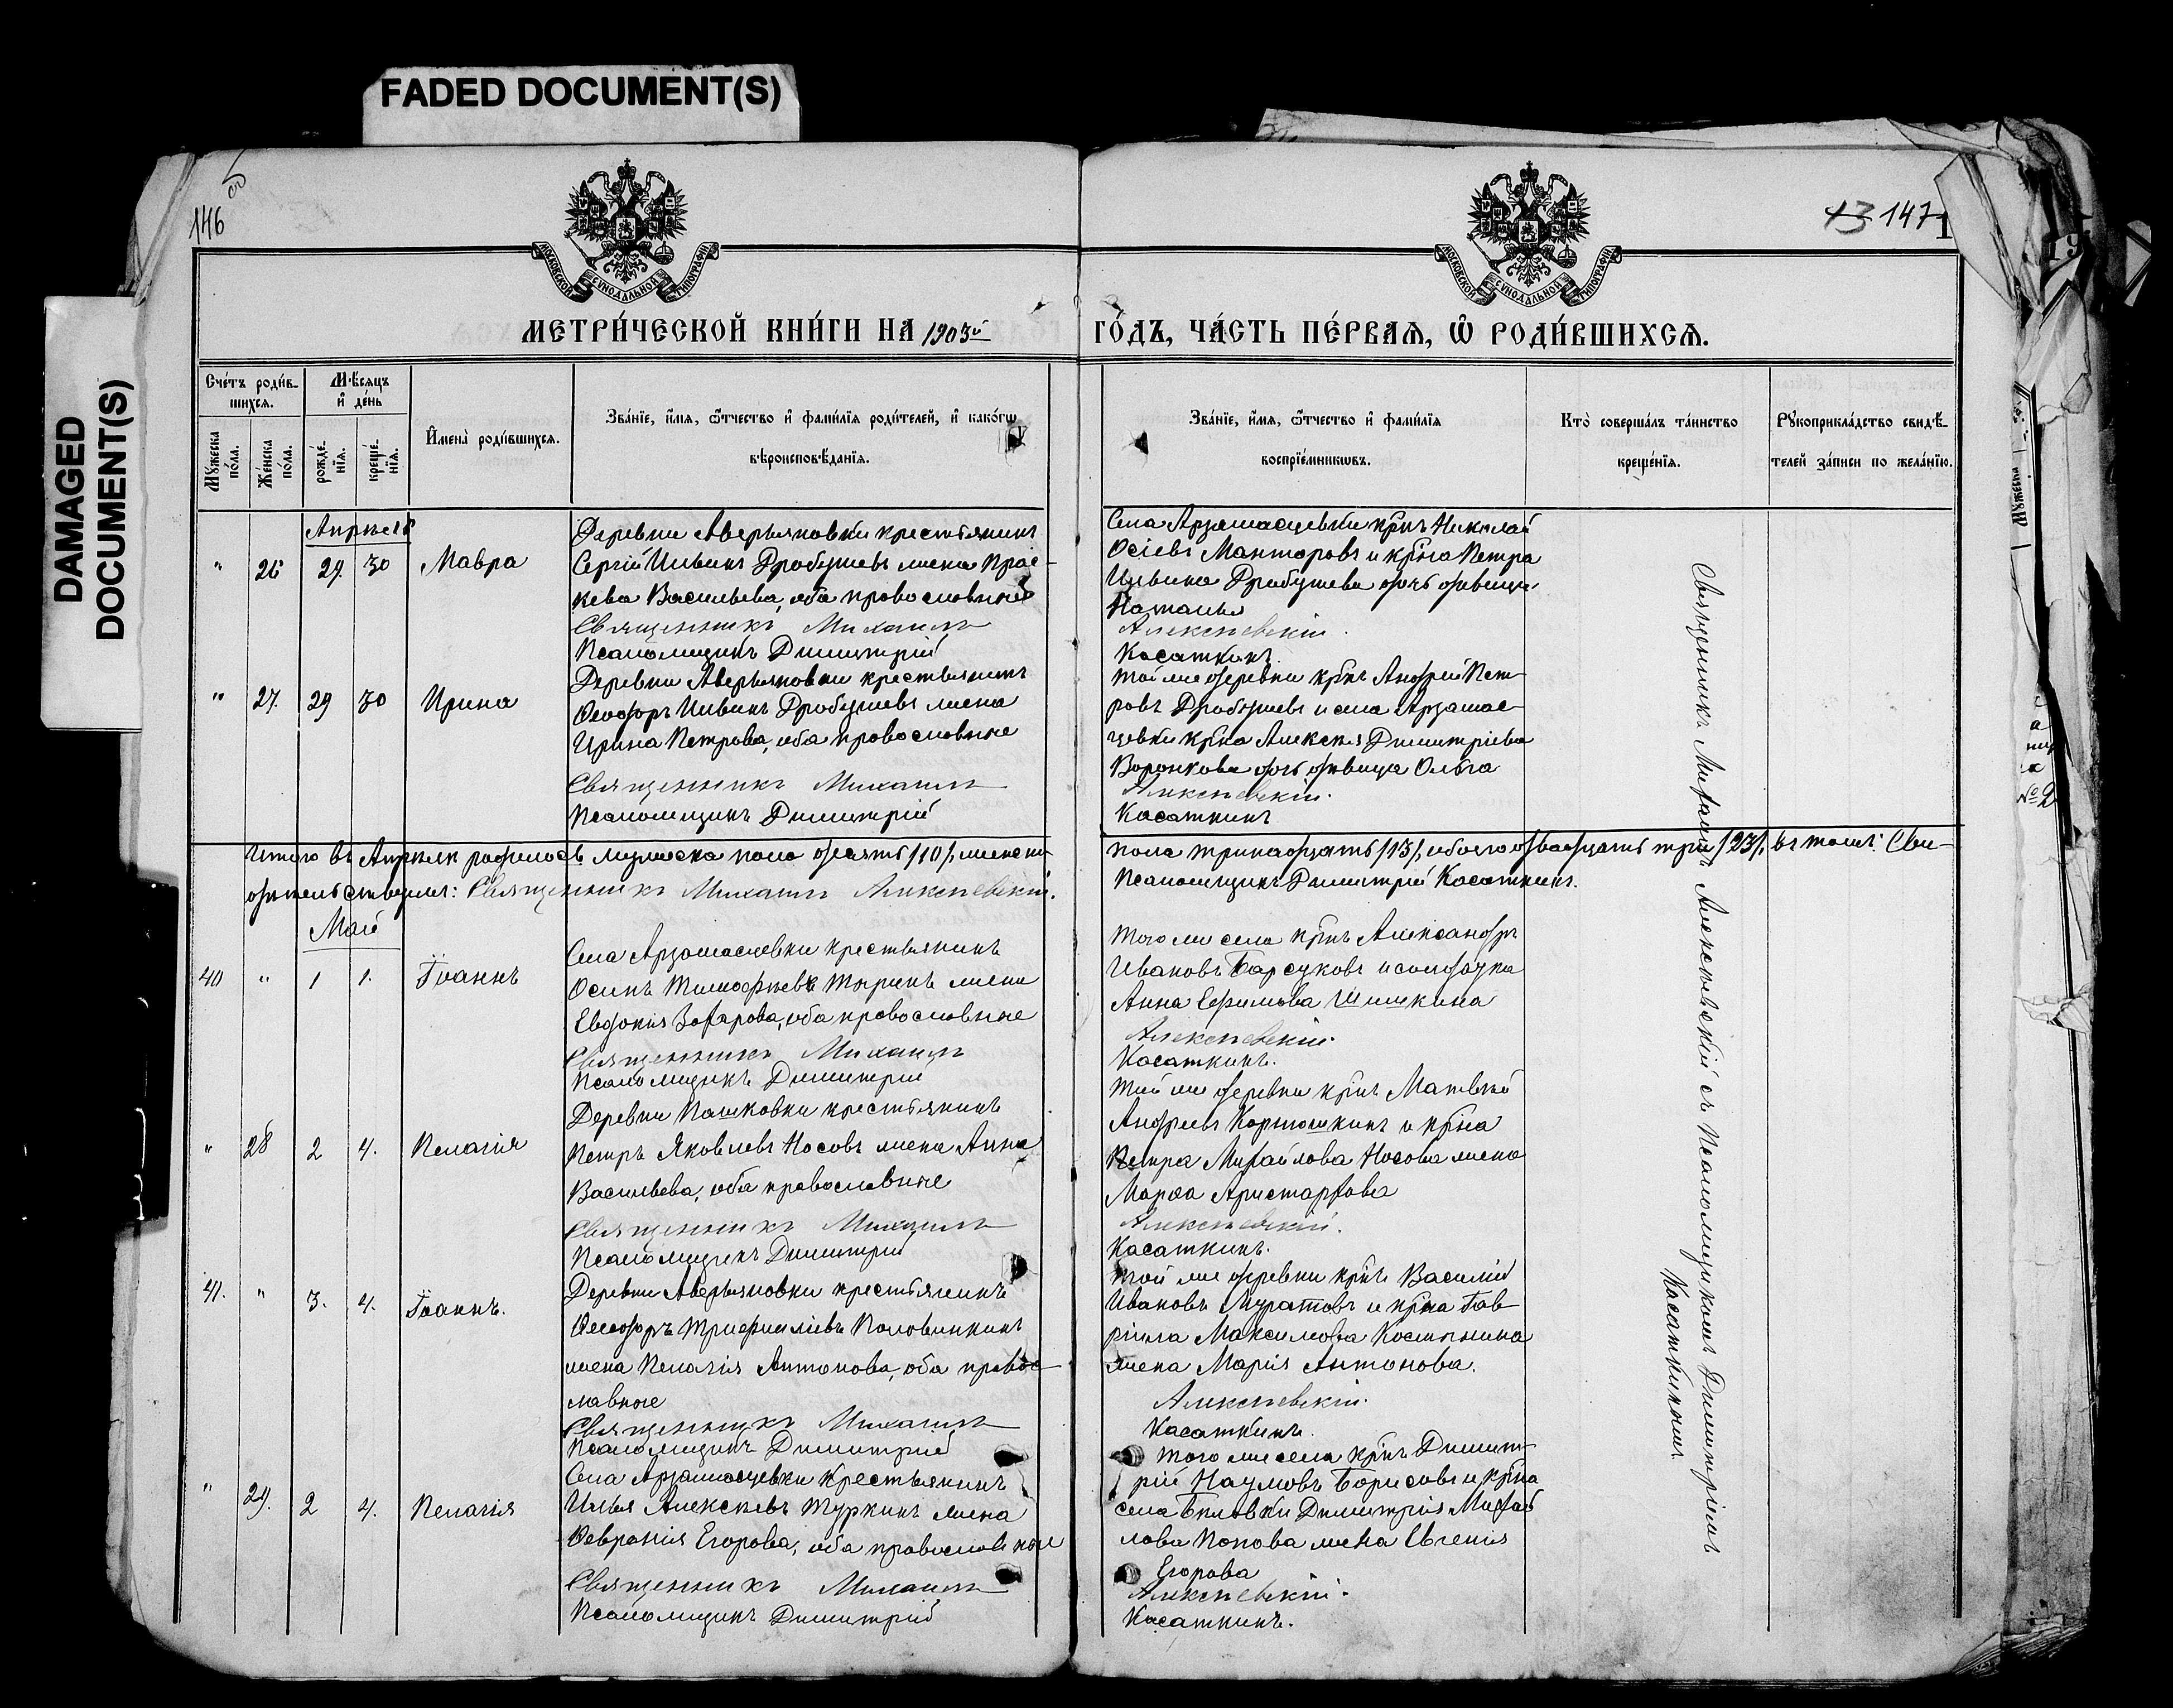 FADED DOCUMENT(S)
DAMAGED
DOCUMENT(S)
146
13 147
МОСКОВСКОЙ СѴНОДАЛЬНОЙ ТИПОГРАФІИ
МОСКОВСКОЙ СѴНОДАЛЬНОЙ ТИПОГРАФІИ
МЕТРИ́ЧЕСКОЙ КНИ́ГИ НА 1903й ГО́ДЪ, ЧА́СТЬ ПЕ́РВАѦ, Ѡ҆ РОДИ́ВШИХСѦ.
Сче́тъ роди́в-
шихсѧ.
Мѣ́сѧцъ
и҆ де́нь
Мꙋ́жеска
по́ла.
Же́нска
по́ла.
рожде́-
нїѧ.
креще́-
нїѧ.
И҆мена̀ роди́вшихсѧ.
Зва́нїе, и҆́мѧ, ѻ҆́тчество и҆ фами́лїѧ роди́телей, и҆ како́гѡ
вѣроисповѣ́данїѧ.
Зва́нїе, и҆́мѧ, ѻ҆́тчество и҆ фами́лїѧ
воспрїе́мникѡвъ.
Кто̀ соверша́лъ та́инство
креще́нїѧ.
Рꙋкоприкла́дство свидѣ́-
телей за́писи по жела́нїю.
Апрѣль
" 26 29. 30 Мавра
Деревни Аверьяновки крестьянинъ
Сергій Ильинъ Дробушевъ жена Прас-
кева Васильева, оба православные
Священникъ Михаилъ
Псаломщикъ Димитрій
Села Арзамасцевки крнъ Николай
Осіевъ Манторовъ и крна Петра
Ильина Дробушева дочь дѣвица
Наталья
Алексѣевскій.
Касаткинъ.
" 27. 29 30 Ирина
Деревни Аверьяновки крестьянинъ
Ѳеодоръ Ильинъ Дробушевъ жена
Ирина Петрова, оба православные
Священникъ Михаилъ
Псаломщикъ Димитрій
Той же деревни крнъ Андрей Пет-
ровъ Дробушевъ и села Арзамас-
цевки крна Алексѣя Димитріева
Воронкова дочь дѣвица Ольга
Алексѣевскій.
Касаткинъ
Итого въ Апрѣлѣ родилось мужеска пола десять /10/, женска пола тринадцать /13/, обоего двадцать три /23/, въ томъ: Сви-
дѣтельствуемъ: Священникъ Михаилъ Алексѣевскій. Псаломщикъ Димитрій Касаткинъ.
Май
40 " 1 1. Іоаннъ
Села Арзамасцевки крестьянинъ
Осипъ Тимофѣевъ Тюринъ жена
Евдокія Захарова, оба православные
Священникъ Михаилъ
Псаломщикъ Димитрій
Того же села крнъ Александръ
Ивановъ Барсуковъ и солдатка
Анна Ефимова Шишкина
Алексѣевскій.
Касаткинъ.
" 28 2 4. Пелагія
Деревни Пашковки крестьянинъ
Петръ Яковлевъ Носовъ жена Анна
Васильева, оба православные
Священникъ Михаилъ
Псаломщикъ Димитрій
Той же деревни крнъ Матвѣй
Андреевъ Картошкинъ и крна
Петра Михайлова Носова жена
Марѳа Аристархова
Алексѣевскій.
Касаткинъ.
41. " 3. 4. Іоаннъ.
Деревни Аверьяновки крестьянинъ
Ѳеодоръ Трифиліевъ Половинкинъ
жена Пелагія Антонова, оба правос-
лавные
Священникъ Михаилъ
Псаломщикъ Димитрій
Той же деревни крнъ Василій
Ивановъ Муратовъ и крна Гав-
ріила Максимова Костюнина
жена Марія Антонова.
Алексѣевскій.
Касаткинъ.
" 29. 2 4. Пелагія
Села Арзамасцевки крестьянинъ
Илья Алексѣевъ Туркинъ жена
Ѳевронія Егорова, оба православные
Священникъ Михаилъ
Псаломщикъ Димитрій
Того же села крнъ Димит-
рій Наумовъ Борисовъ и крна
села Бѣловки Димитрія Михай
лова Попова жена Евгенія
Егорова
Алексѣевскій.
Касаткинъ.
Священникъ Михаилъ Алексѣевскій съ Псаломщикомъ Димитріемъ
Касаткинымъ.